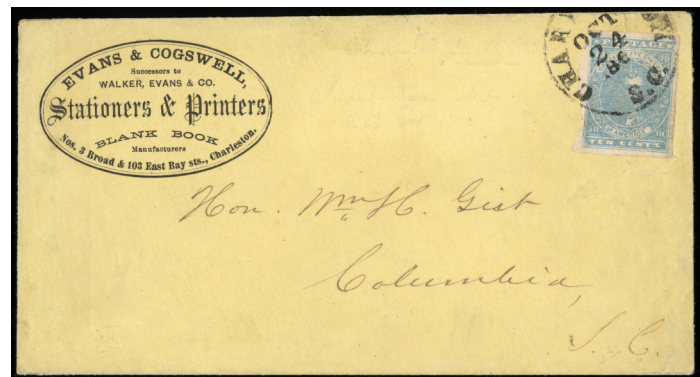 EVANS & COGSWELL,
Successors to
WALKER, EVANS & CO.
Stationers & Printers
BLANK BOOK
Manufacturers
Nos. 3 Broad & 103 East Bay sts., Charleston.
OCT
24
S.C.
POSTAGE
10 10
TEN CENTS
Hon. Wm H. Gist
Columbia,
S. C.